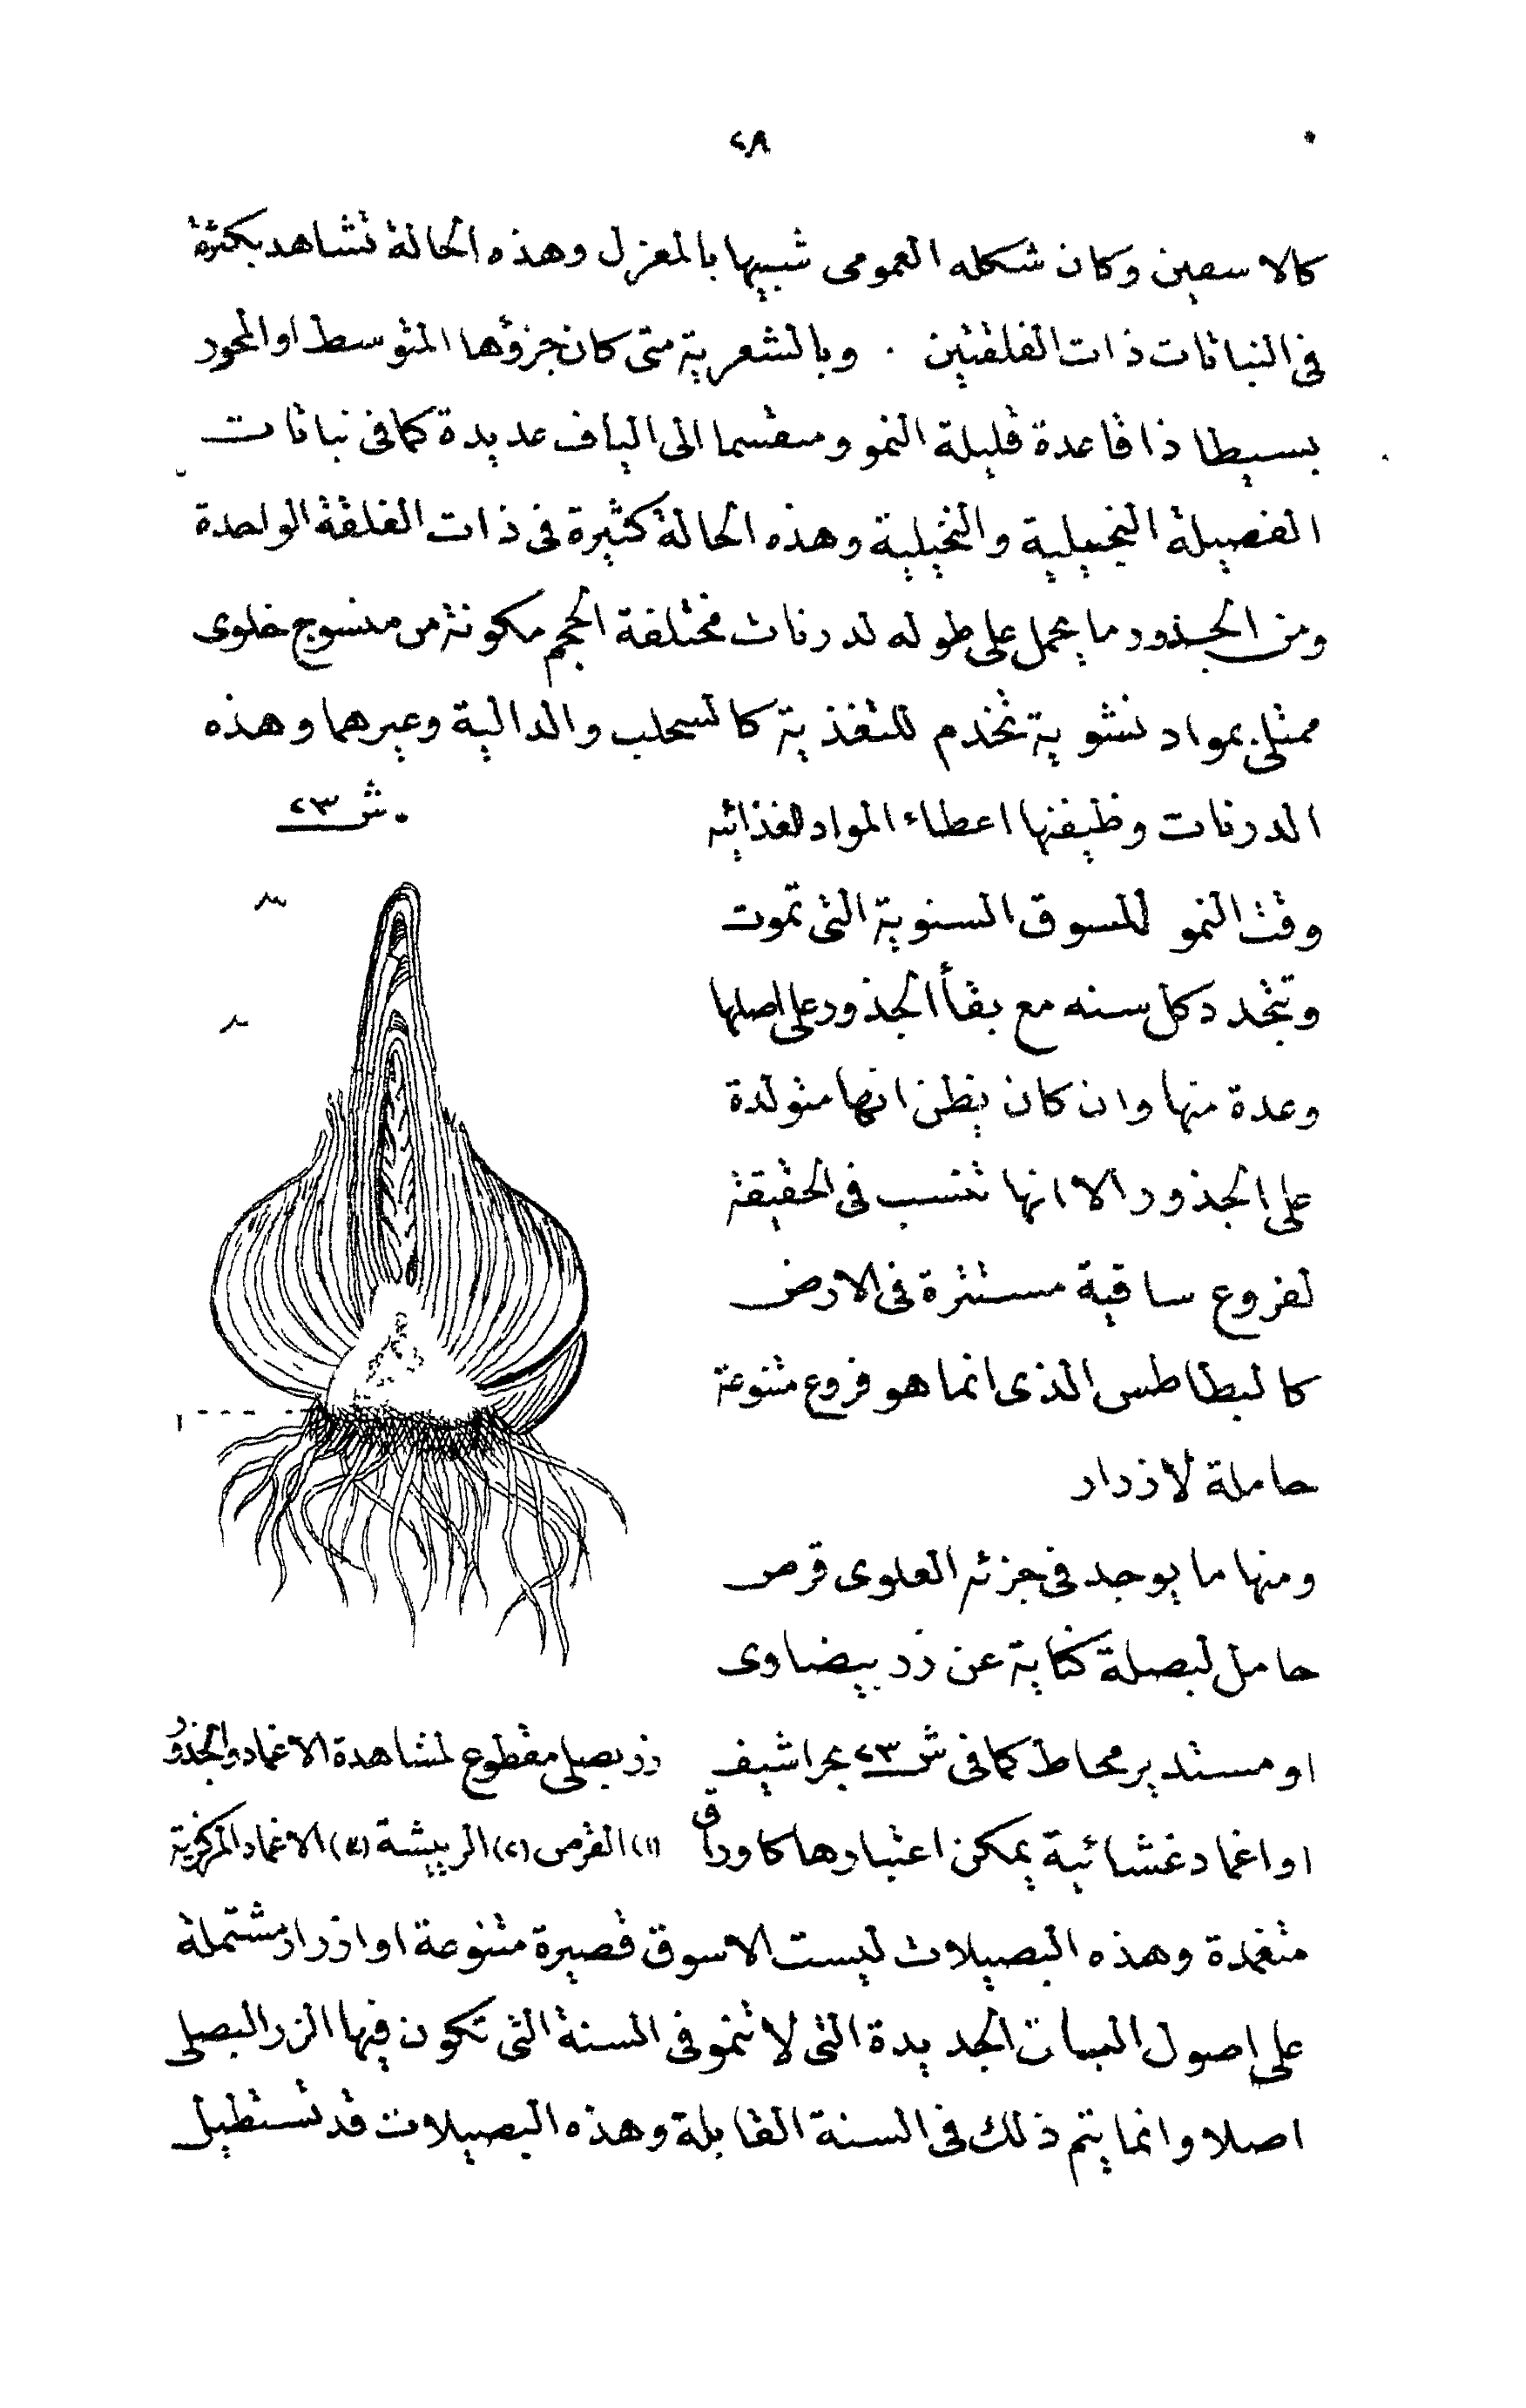 ٢٨
كالاسفين وكان شكله العمومى شبيها بالمغزل وهذه الحالة تشاهد بكثرة
فى النباتات ذات الفلقتين . وبالشعرية متى كان جزؤها المتوسط او المحور
بسيطا ذا قاعدة قليلة النمو ومنقسما الى الياف عديدة كما فى نباتات
الفصيلة النجيلية والنخيلية وهذه الحالة كثيرة فى ذات الفلقة الواحدة
ومن الجذور ما يحمل على طوله لدرنات مختلفة الحجم مكونة من منسوج خلوى
ممتلى بمواد نشوية تخدم للتغذية كالسحلب والدالية وغيرهما وهذه
الدرنات وظيفتها اعطاء المواد الغذائيه
وقت النمو للسوق السنوية التى تموت
وتتجدد كل سنه مع بقأ الجذور على اصلها
وعدة منها وان كان يظن انها متولدة
على الجذور الا انها تنسب فى الحقيقة
لفروع ساقية مستترة فى الارض
كالبطاطس الذى انما هو فروع متنوعة
حاملة لازرار
ومنها ما يوجد فى جزئه العلوى قرص
حامل لبصلة كناية عن زر بيضاوى
او مستدير محاط كما فى ش ٢٣ بحراشيف
او اغماد غشائية يمكن اعتبارها كاوراق
ش ٢٣
٣
٢
١
زر بصلى مقطوع لمشاهدة الاغماد والجذور
(١) القرص (٢) الريشة (٣) الاغماد المركزية
متغمدة وهذه البصيلات ليست الا سوق قصيرة متنوعة او ازرار مشتملة
على اصول النبات الجديدة التى لا تنمو فى السنة التى تكون فيها الزر البصلى
اصلا وانما يتم ذلك فى السنة القابلة وهذه البصيلات قد تستطيل